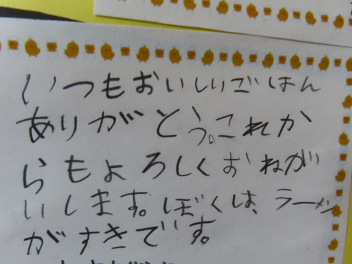 いつもおいしいごはん
ありがとう。これか
らもよろしくおねがい
いします。ぼくは、ラーメン
がすきです。